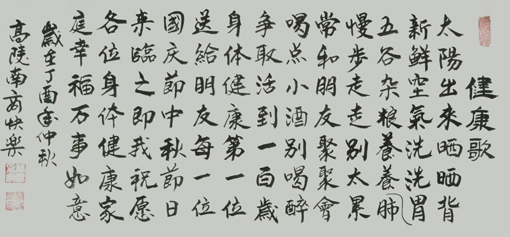 健康歌
太陽出来晒晒背
新鮮空氣洗洗胃
五谷杂粮養養肺
慢步走走别太累
常和朋友聚聚會
喝点小酒别喝醉
争取活到一百歲
身体健康第一位
送給明友每一位
國庆節中秋節日
来臨之即我祝愿
各位身体健康家
庭幸福万事如意
歲在丁酉年仲秋
高陵南商快樂